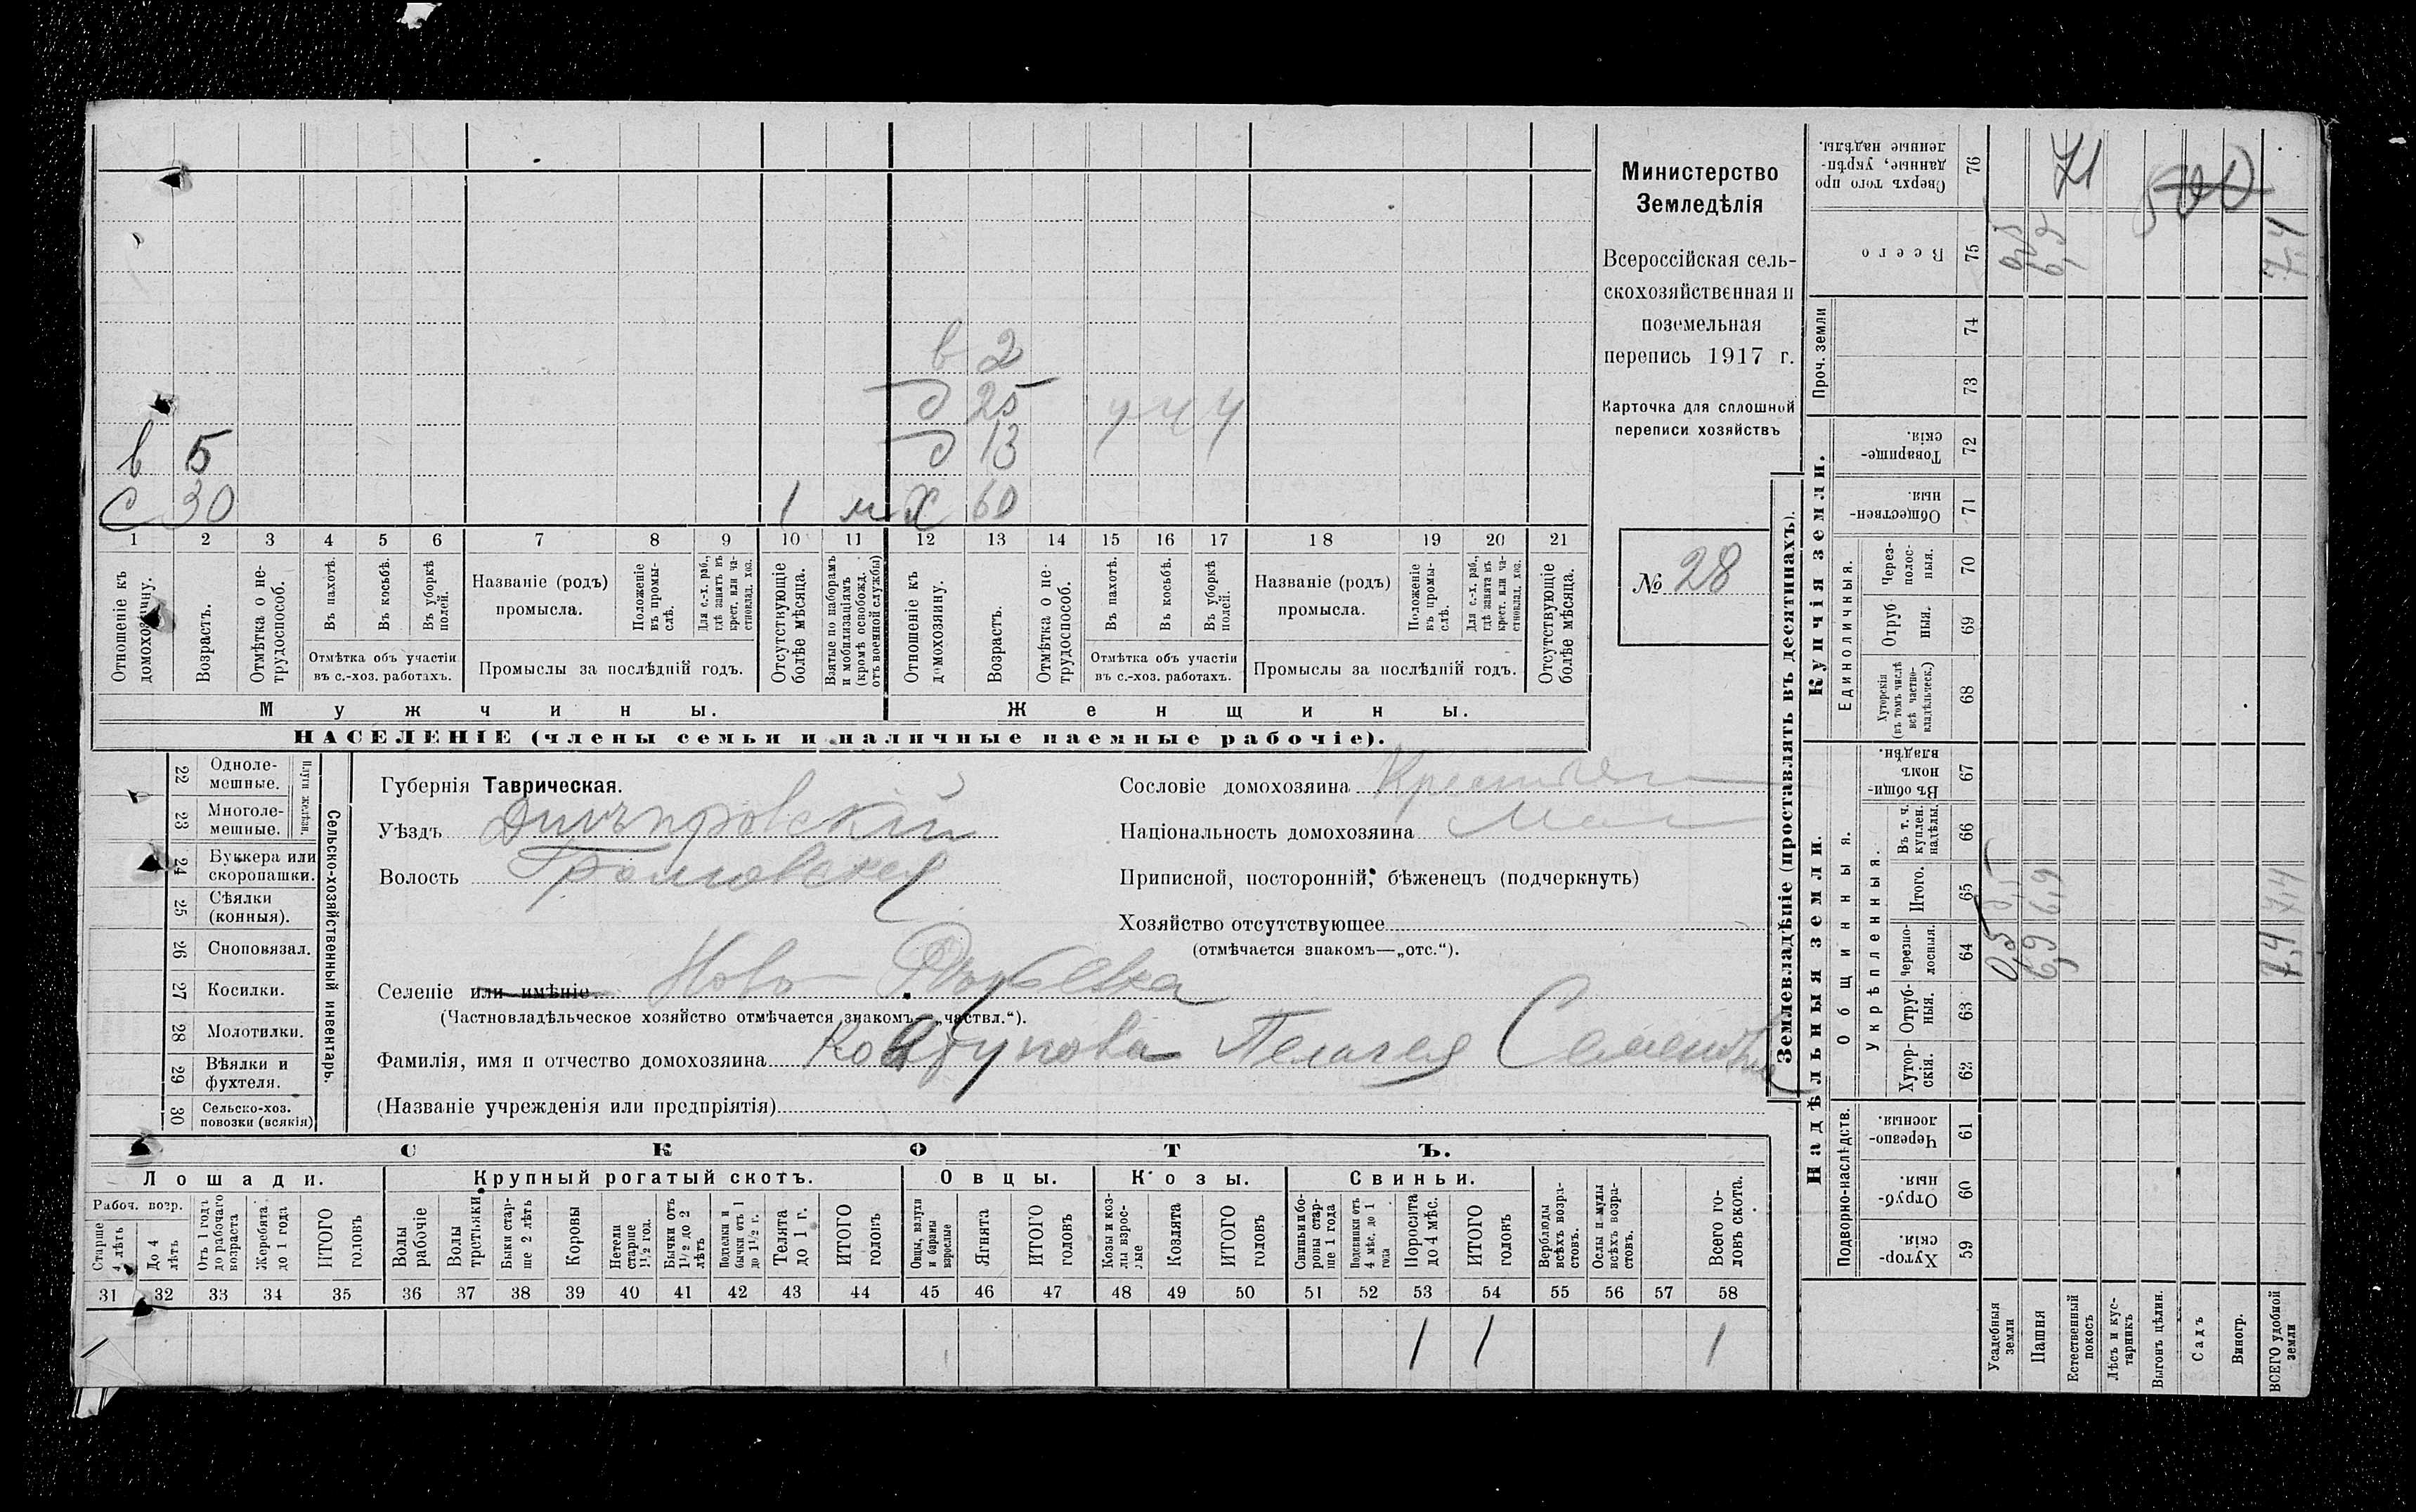 в 2
д 25 ч ч ч
в 5 д 13
с 30 1 м х 60
1 2 3 4 5 6 7 8 9 10 11 12 13 14 15 16 17 18 19 20 21
Отношеніе къ домохозяину.
Возрастъ.
Отмѣтка о не-
трудоспособ.
Въ пахотѣ.
Въ косьбѣ.
Въ уборкѣ
полей.
Отмѣтка объ участіи
въ с.-хоз. работахъ.
Названіе (родъ)
промысла.
Положеніе
въ промы-
слѣ.
Для с.-х. раб.,
гдѣ занятъ въ
крест. или ча-
стновлад. хоз.
Промыслы за послѣдній годъ.
Отсутствующіе
болѣе мѣсяца.
Взятые по наборамъ
и мобилизаціямъ
(кромѣ освобожд.
отъ военной службы)
Отношеніе къ
домохозяину.
Возрастъ.
Отмѣтка о не-
трудоспособ.
Въ пахотѣ.
Въ косьбѣ.
Въ уборкѣ
полей.
Отмѣтка объ участіи
въ с.-хоз. работахъ.
Названіе (родъ)
промысла.
Положеніе
въ промы-
слѣ.
Для с.-х. раб.,
гдѣ занята въ
крест. или ча-
стновлад. хоз.
Промыслы за послѣдній годъ.
Отсутствующіе
болѣе мѣсяца.
Мужчины. Женщины.
НАСЕЛЕНІЕ (члены семьи и наличные наемные рабочіе).
Министерство
Земледѣлія
Всероссійская сель-
скохозяйственная и
поземельная
перепись 1917 г.
Карточка для сплошной
переписи хозяйствъ
№ 28
22 Одноле-
мешные.
23 Многоле-
мешные.
Плуги желѣзн.
24 Буккера или
скоропашки.
25 Сѣялки
(конныя).
26 Сноповязал.
27 Косилки.
28 Молотилки.
29 Вѣялки и
фухтеля.
30 Сельско-хоз.
повозки (всякія)
Сельско-хозяйственный инвентарь.
Губернія Таврическая.
Уѣздъ Днѣпровскій
Волость Громовская
Сословіе домохозяина
Національность домохозяина Мал
Приписной, посторонній, бѣженецъ (подчеркнуть)
Хозяйство отсутствующее
(отмѣчается знакомъ—„отс.“).
Селеніе или имѣніе Ново-
(Частновладѣльческое хозяйство отмѣчается знакомъ—„частвл.“).
Фамилія, имя и отчество домохозяина Пелагея Семеновна
(Названіе учрежденія или предпріятія)
СКОТЪ.
Лошади. Крупный рогатый скотъ. Овцы. Козы. Свиньи.
Рабоч. возр.
Старше
4 лѣтъ
До 4
лѣтъ
Отъ 1 года
до рабочаго
возраста
Жеребята
до 1 года
ИТОГО
головъ
Волы
рабочіе
Волы
третьяки
Быки стар-
ше 2 лѣтъ
Коровы
Нетели
старше
1½ год.
Бычки отъ
1½ до 2
лѣтъ
Подтелки и
бычки отъ 1
до 1½ г.
Телята
до 1 г.
ИТОГО
головъ
Овцы, валухи
и бараны
взрослые
Ягнята
ИТОГО
головъ
Козы и коз-
лы взрос-
лые
Козлята
ИТОГО
головъ
Свиньи и бо-
ровы стар-
ше 1 года
Подсвинки отъ
4 мѣс. до 1
года
Поросята
до 4 мѣс.
ИТОГО
головъ
Верблюды
всѣхъ возра-
стовъ.
Ослы и мулы
всѣхъ возра-
стовъ.
Всего го-
ловъ скота.
31 32 33 34 35 36 37 38 39 40 41 42 43 44 45 46 47 48 49 50 51 52 53 54 55 56 57 58
1 1 1
Землевладѣніе (проставлять въ десятинахъ).
Надѣльныя земли. Купчія земли.
Подворно-наслѣдств. Общинныя. Единоличныя. Проч. земли
Укрѣпленныя.
Хутор-
скія. 59
Отруб-
ныя. 60
Черезпо-
лосныя 61
Хутор-
скія. 62
Отруб-
ныя. 63
Черезпо-
лосныя. 64
Итого. 65
Въ т. ч.
куплен.
надѣлы. 66
Въ общин-
номъ
владѣн. 67
Хуторскія
(въ томъ числѣ
всѣ частно-
владѣльческ.) 68
Отруб
ныя. 69
Через-
полос-
ныя. 70
Обществен-
ныя. 71
Товарище-
скія. 72
73
74
Всего 75
Сверхъ того про
данные, укрѣп-
ленные надѣлы. 76
Усадебныя
земли 0,5 0,5 0,5
Пашня 6,9 6,9 6,9
Естественный
покосъ
Лѣсъ и кус-
тарникъ
Выгонъ цѣлин.
Садъ
Виногр.
ВСЕГО удобной
земли 7,4 7,4 7,4
71
500